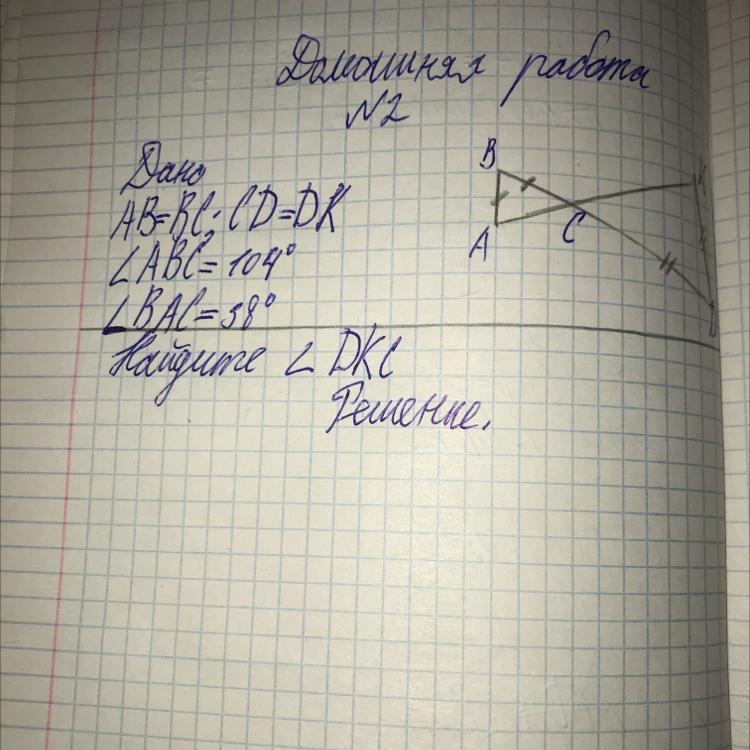 Домашняя работа
N2
Дано
AB=BC; CD=DK
∠ABC=104°
∠BAC=38°
Найдите ∠ DKC
Решение.
B
A
C
K
D